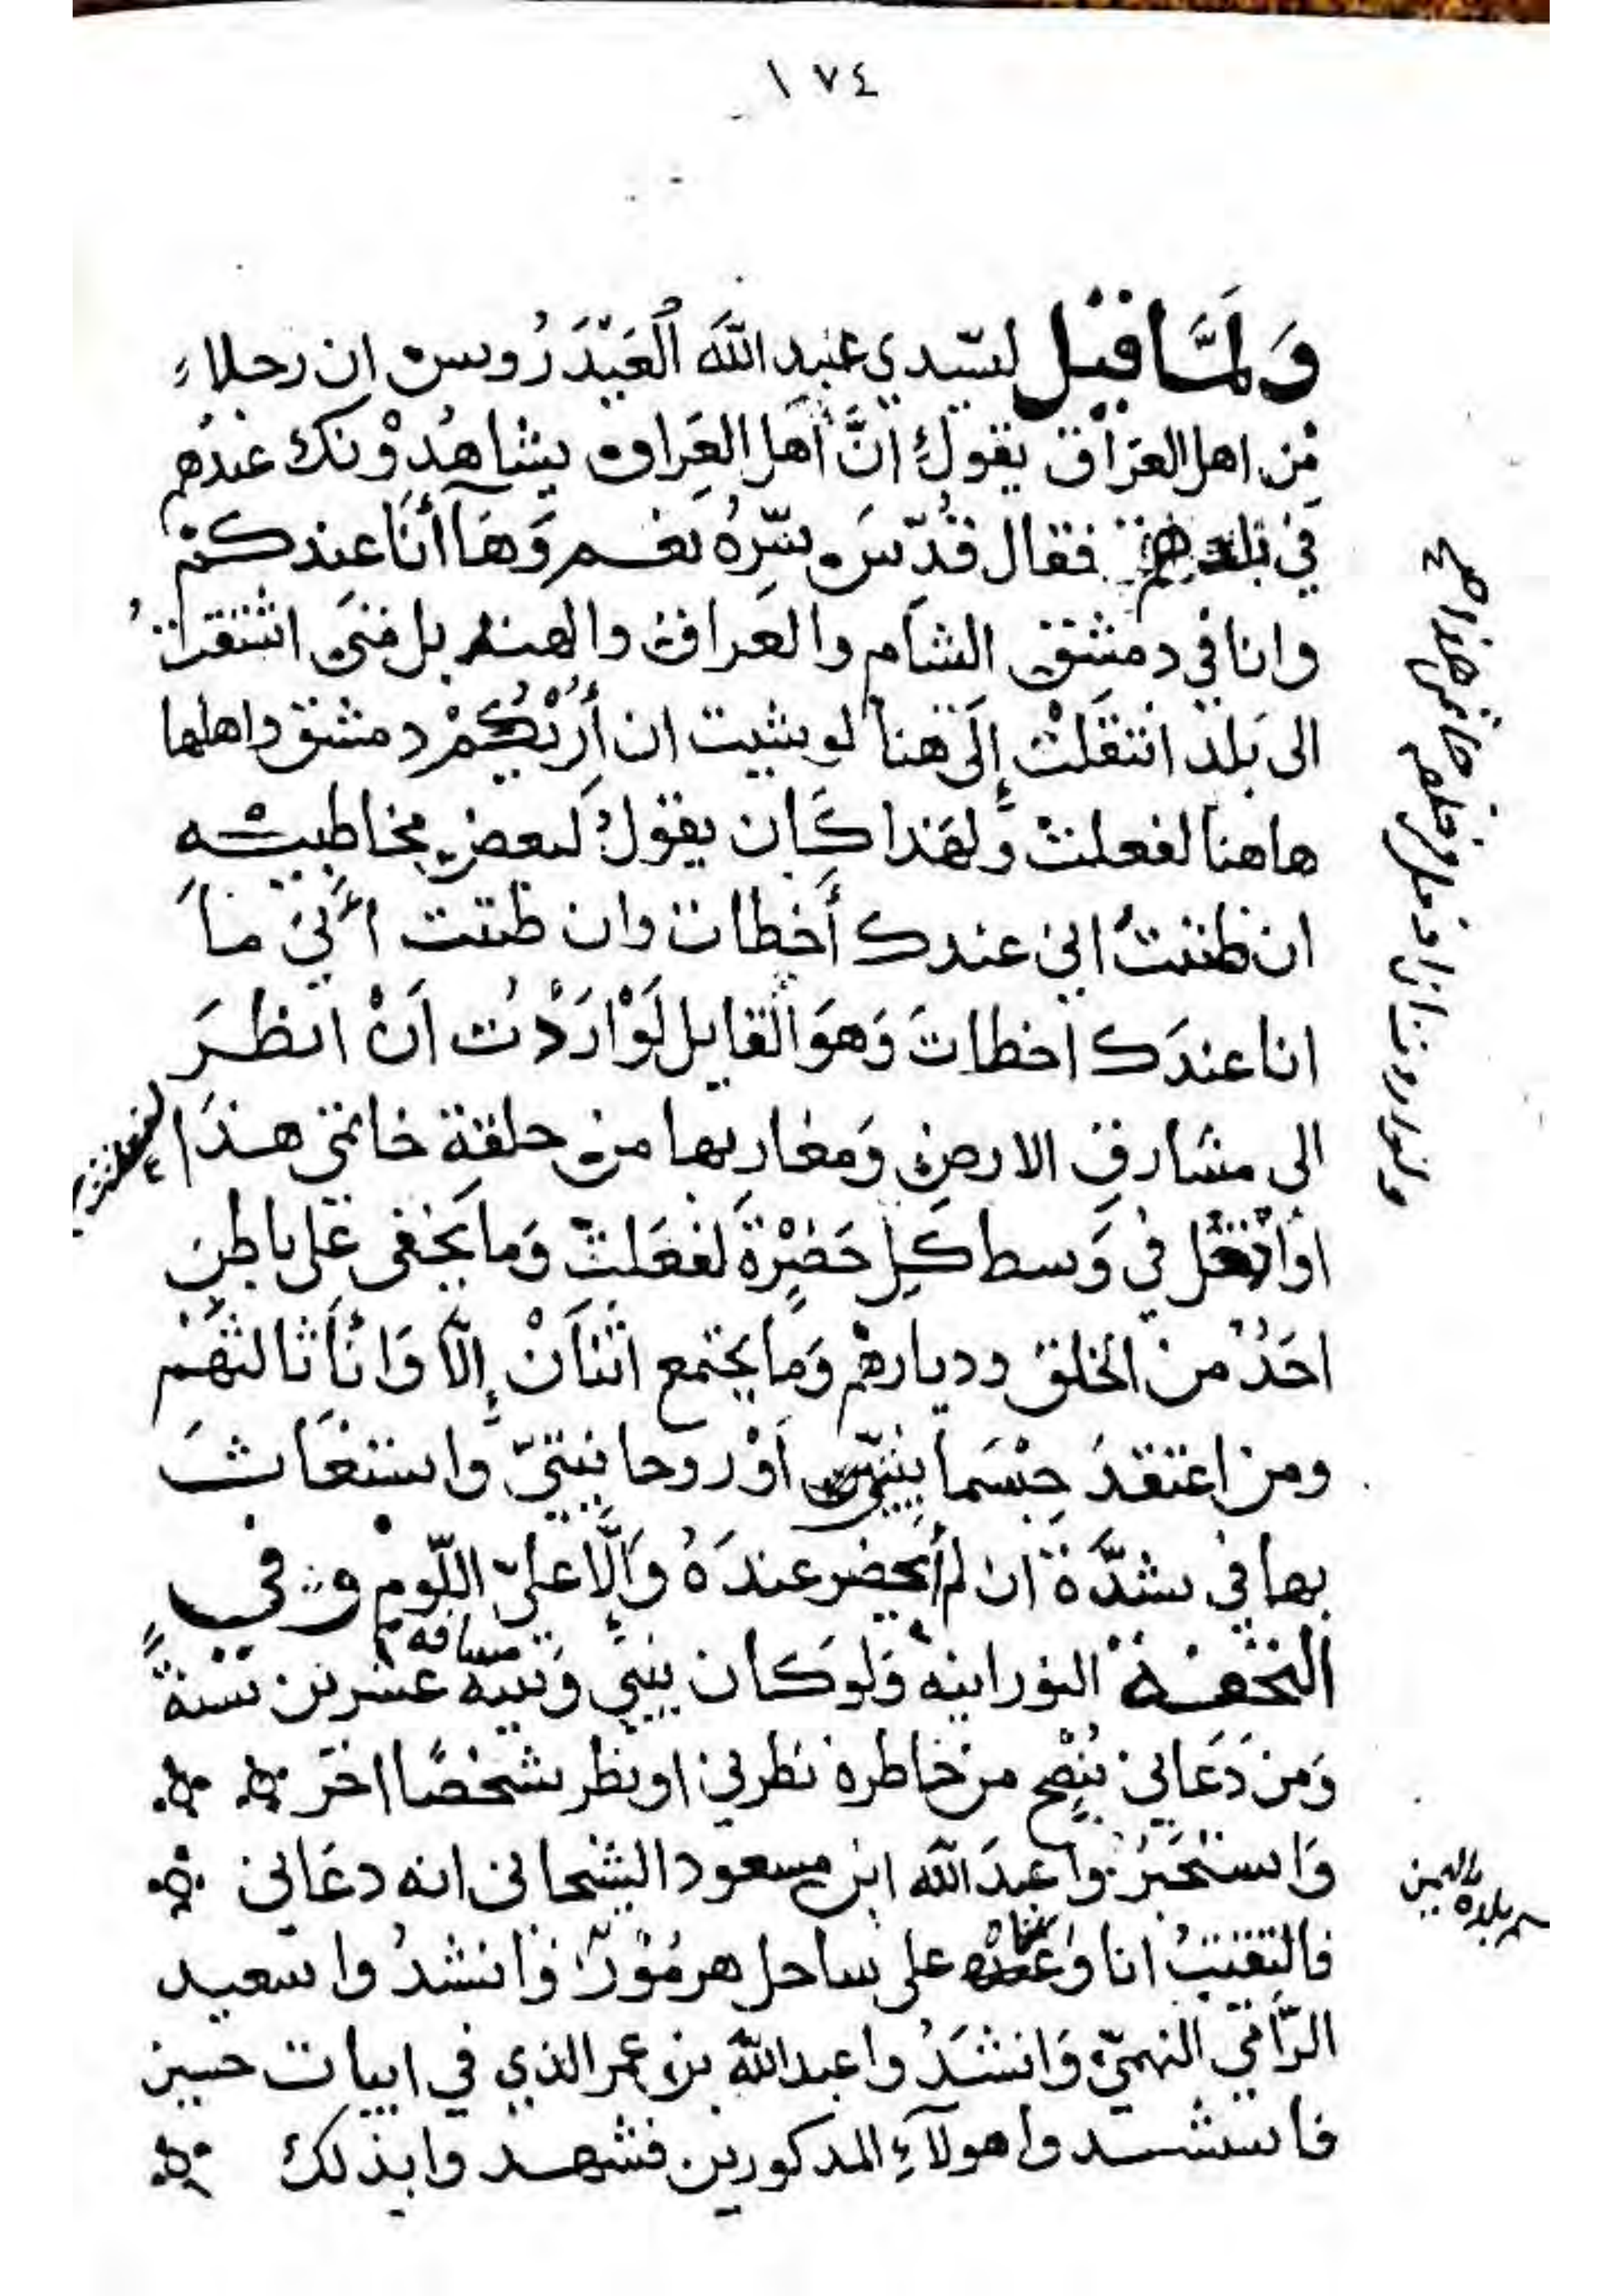 ١٧٤
وَلمَّا قيل لسّيدي عَبد اللّهَ العَيْدَرُوس ان رجلاء
مِّن اهل العَرَاق يقول انَّ أهل العِراق يشاهدوْنك عندهم
في بلدهم فقال قدّسَ سّرُه نعم وَهَا أنَا عندكمْ
وانا في دمشق الشام والعراق والهند بل متىَ اشتقت
الى بَلد انتقلتْ إلَى هنا لو شيت ان أرِيْكُمْ دمشق واهلها
هاهنا لفعلتْ وَلهَذا كَان يقوْل لبعض مخاطبيْهِ
ان ظننتُ اني عندك أخطات وان ظننت اَنيْ مَا
انا عندَك اخطاتَ وَهوَ القايل لَوْ ارَدْت اَنْ انظرَ
الى مشارقِ الارض وَمغاربها من حلقة خاتمي هذَا
لفعلت
او اتفعل في وَسط كلِ حَضِرْة لفعَلتْ وَما يَخفى عَلى باطِن
احَدُ من الخلق وديارهمْ وَما يجتمع اثنانْ إلّا وَانَا ثالثهُمْ
ومن اعتقدَ جسْمانيّتي اَوْ روحانيتيّ واستغَاثَ
بها في شدَّة ان لم أحضر عندَهُ وَإلَّا عليّ اللّوم وفي
التحفة النورانيه وَلو كان بيني وَبينه مسافه عشرين سنةً
وَمن دَعَاني بُنصْح من خاطره نظرني او نظر شخصًا اخَر
وَاستخبرُوا عبدَ اللّه ابن مسعود الشحاني انه دعَاني
فالتقيتُ انا وَ على ساحل هرمُوْز وَانشدُوا سعيد
الرّامي النهميّ وَانشَدُوا عبد اللّه بن عمر الذي في ابيات حسين
فاستشدوا هولآءِ المذكورين فشهدوا بذلك